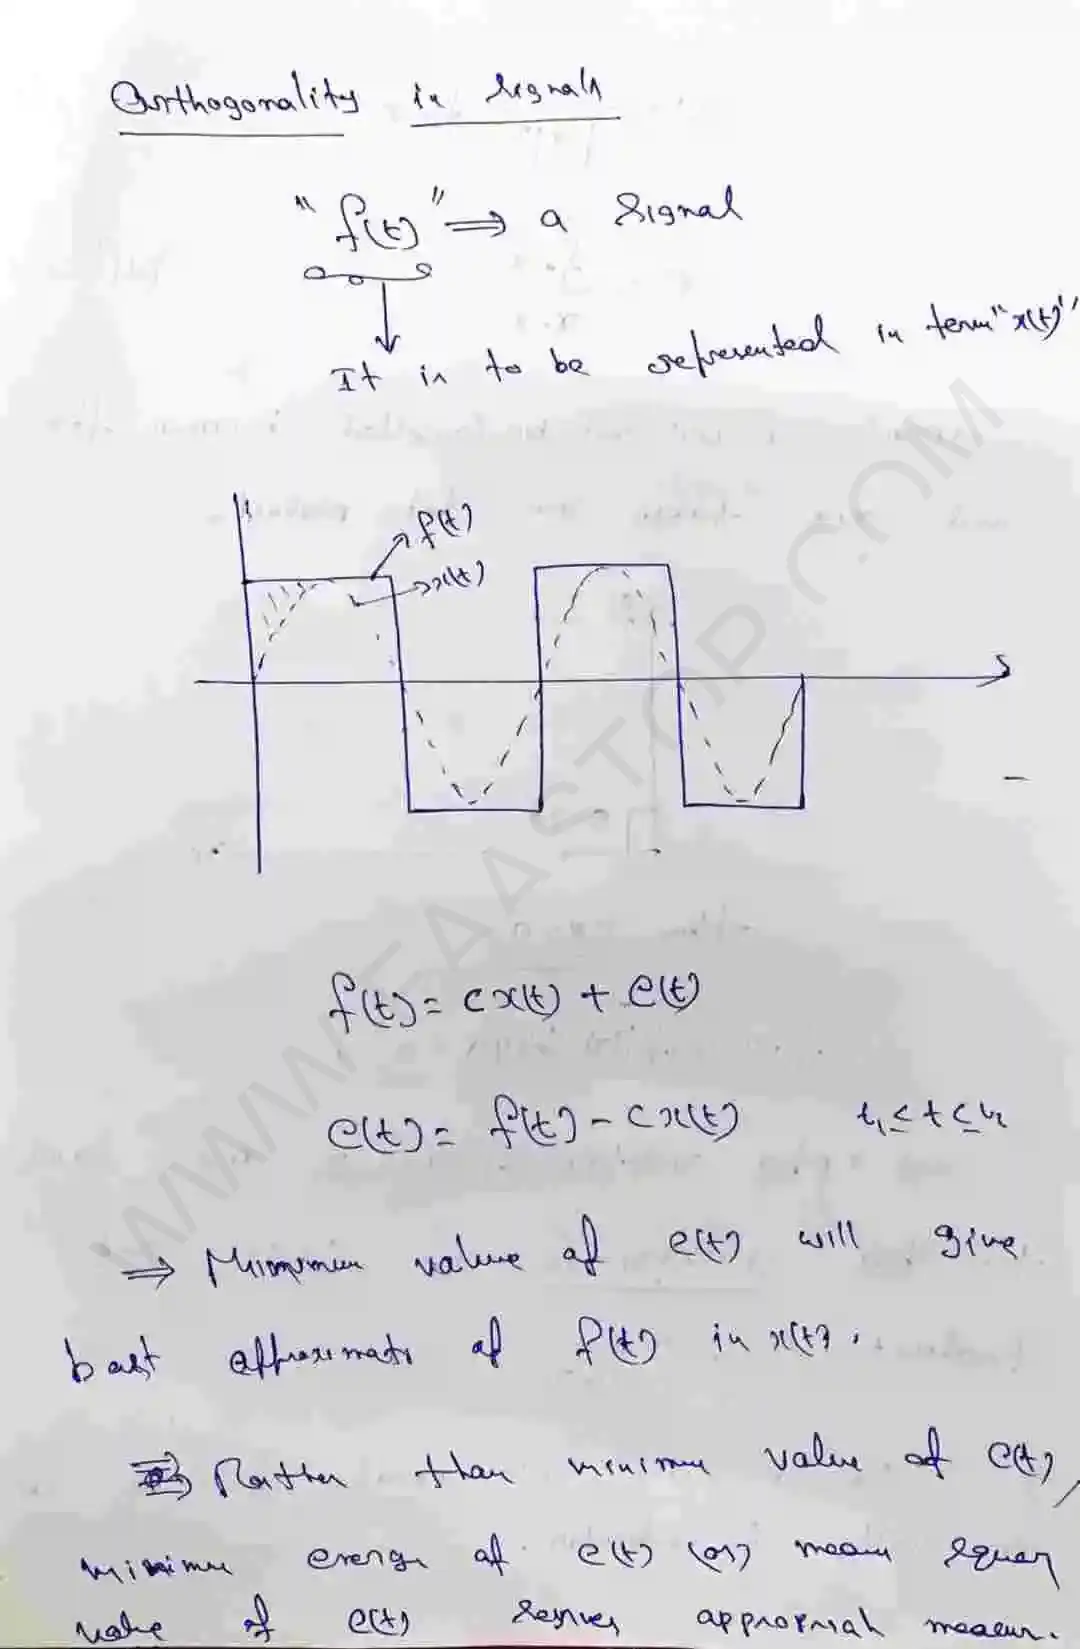 Orthogonality in signals
"f(t)" ⇒ a signal
↓
It is to be represented in term "x(t)"
f(t)
x(t)
f(t) = c x(t) + e(t)
e(t) = f(t) - c x(t) t₁ ≤ t ≤ t₂
⇒ Minimum value of e(t) will give
best approximate of f(t) in x(t).
⇒ Rather than minimum value of e(t),
minimum energy of e(t) (or) mean square
value of e(t) serves appropriate measure.